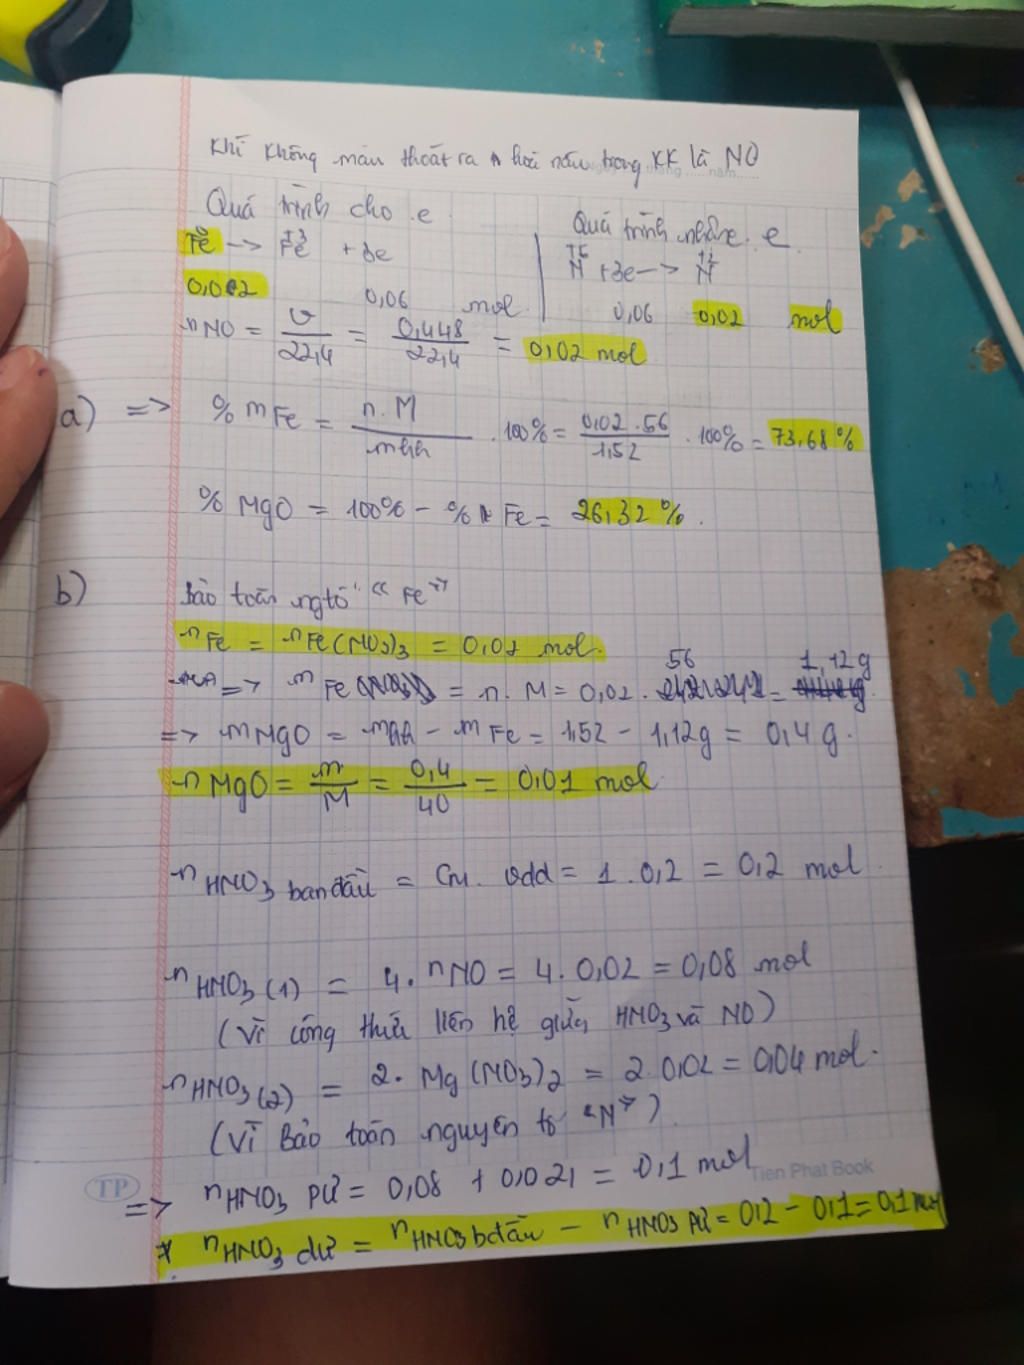 Khí không màu thoát ra hoá nâu trong KK là NO
Quá trình cho e
Quá trình nhận e
Fe → Fe +3e
N +3e → N
0,02 0,06 mol
0,06 0,02 mol
nNO = V/22,4 = 0,448/22,4 = 0,02 mol
a) => % mFe = n.M/mhh . 100% = 0,02.56/1,52 . 100% = 73,68%
% MgO = 100% - % Fe = 26,32%.
b) Bảo toàn ngtố "Fe"
nFe = nFe(NO3)3 = 0,02 mol.
=> mFe = n.M = 0,02. 56 = 1,12g
=> mMgO = mhh - mFe = 1,52 - 1,12g = 0,4g.
nMgO = m/M = 0,4/40 = 0,01 mol
nHNO3 ban đầu = CM. Vdd = 1.0,2 = 0,2 mol.
nHNO3 (1) = 4. nNO = 4. 0,02 = 0,08 mol
(vì công thức liên hệ giữa HNO3 và NO)
nHNO3 (2) = 2. Mg(NO3)2 = 2.0,02 = 0,04 mol.
(Vì Bảo toàn nguyên tố "N")
=> nHNO3 pứ = 0,08 + 0,021 = 0,1 mol
* nHNO3 dư = nHNO3 bđầu - nHNO3 pứ = 0,2 - 0,1 = 0,1 mol
TP
Tien Phat Book